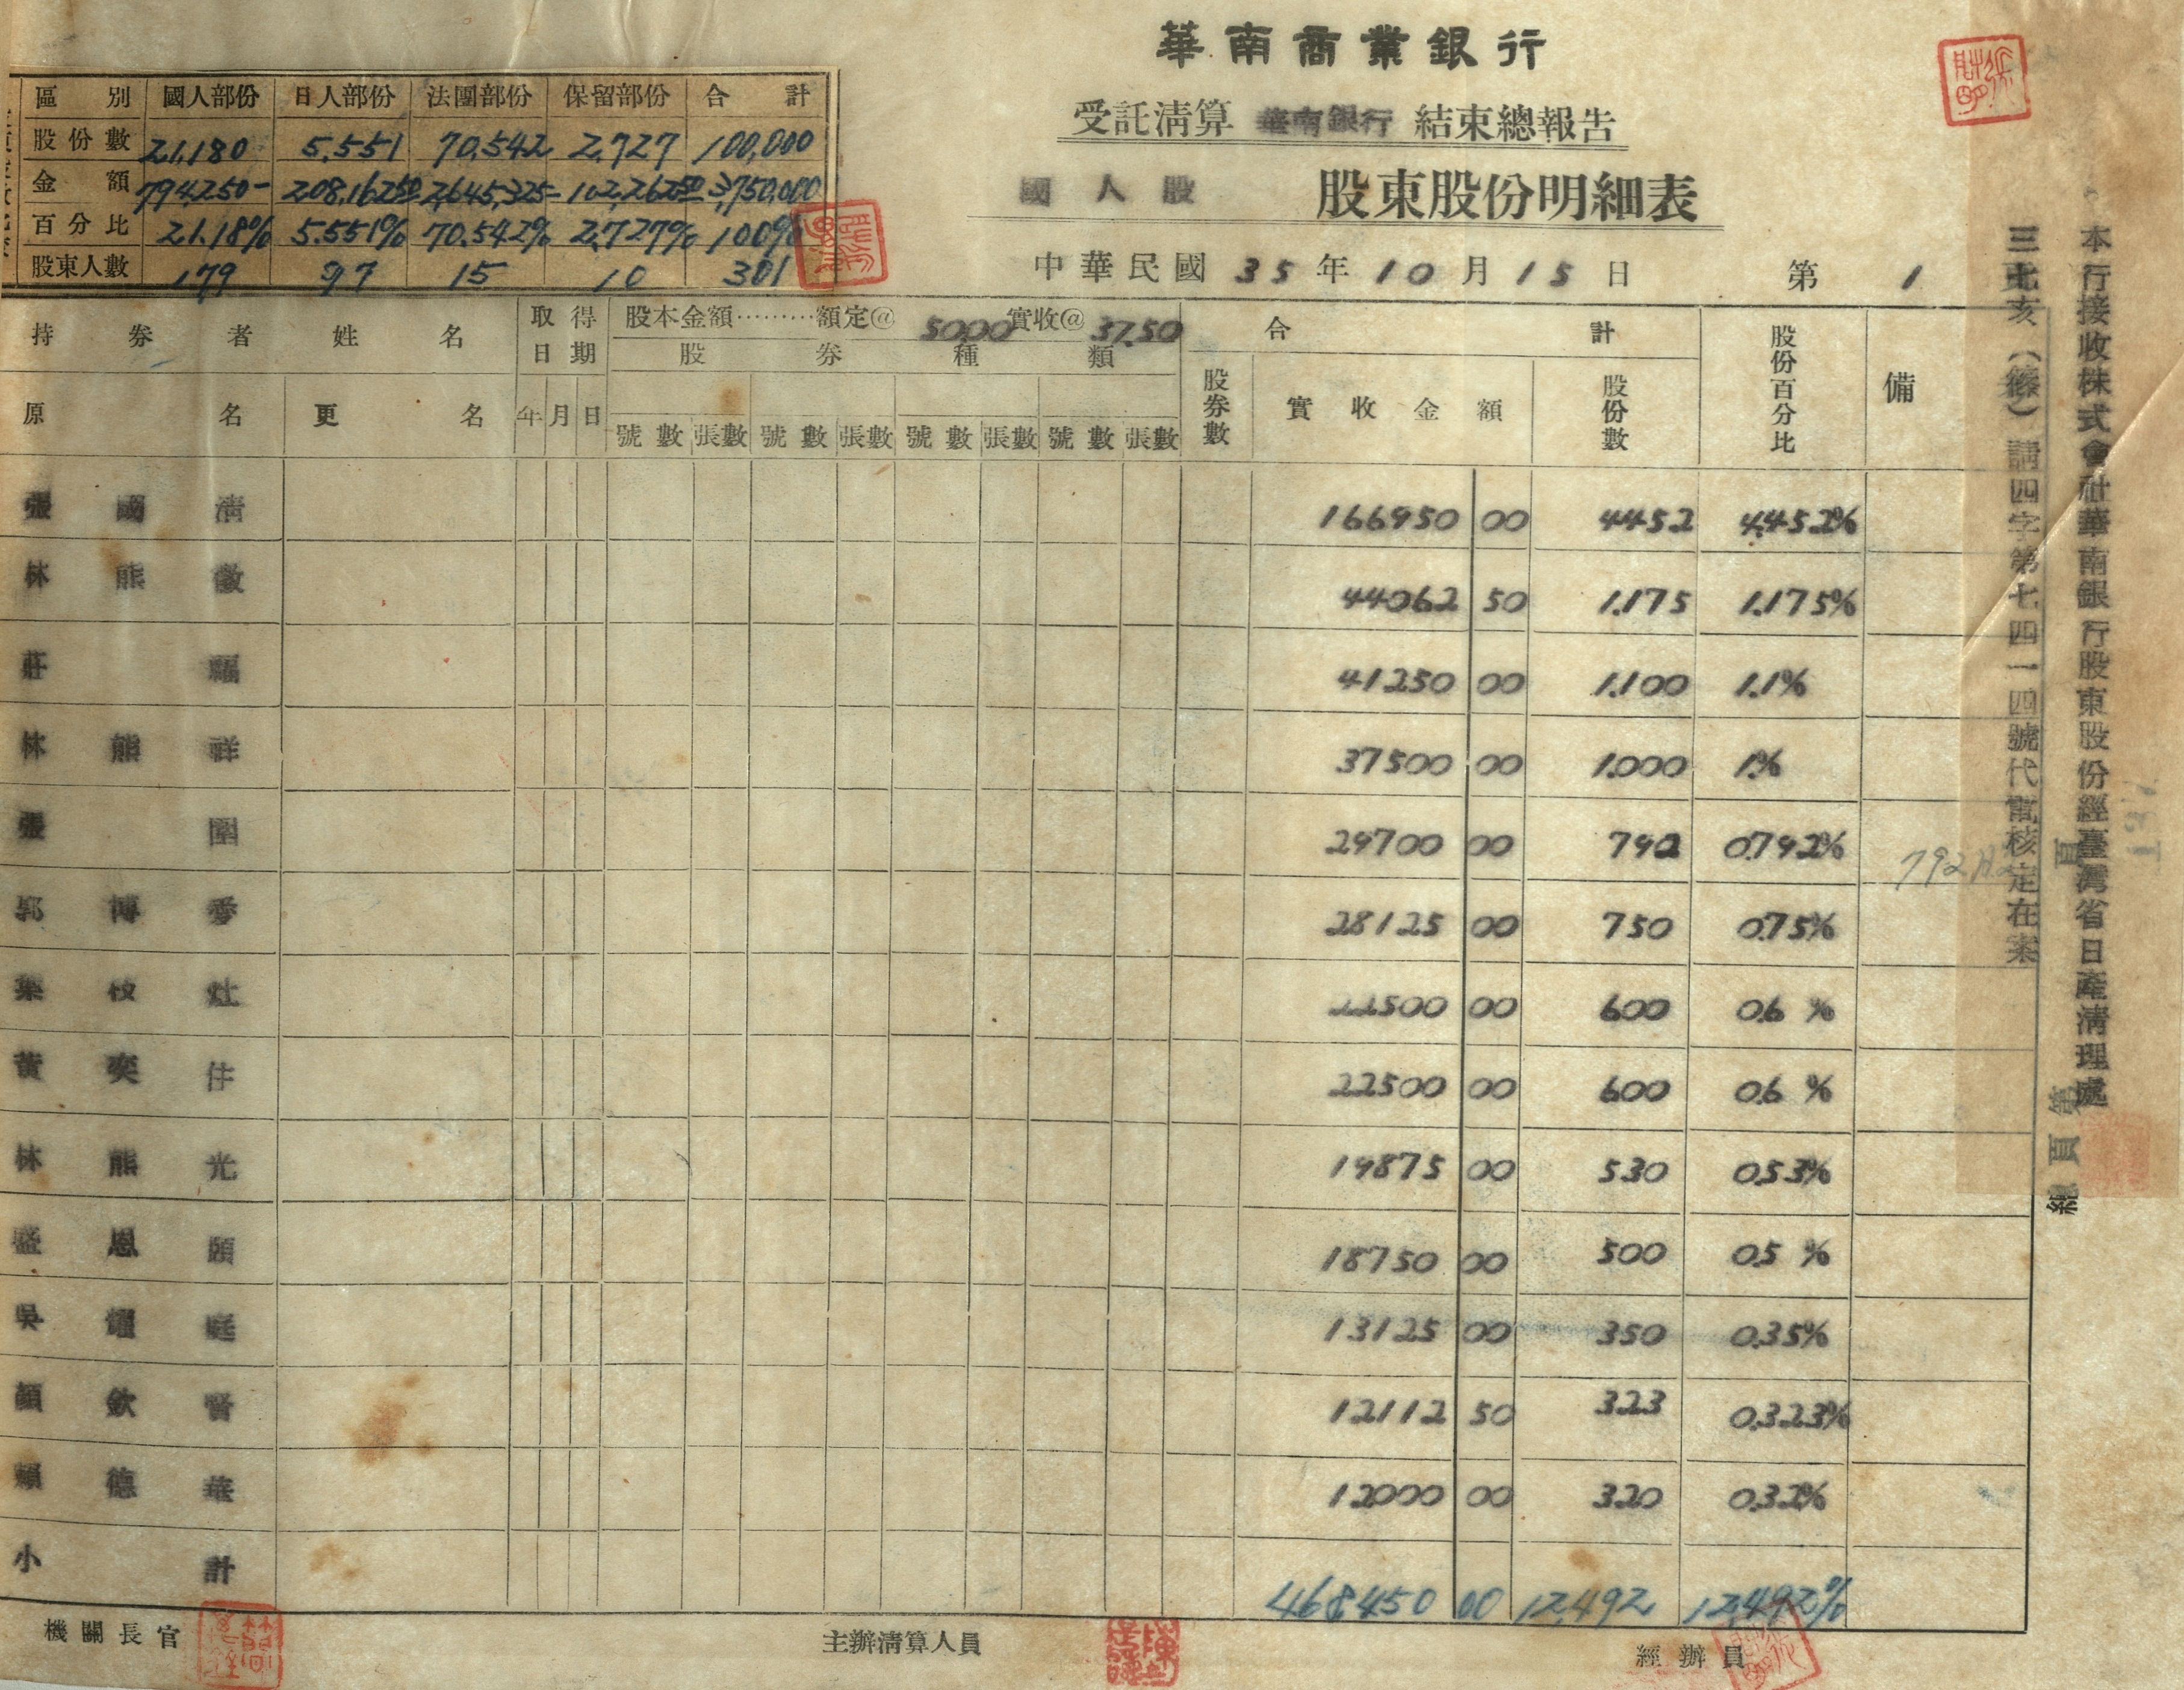 華南商業銀行
受託清算 華南銀行 結束總報告
國人股 股東股份明細表
中華民國 35 年 10 月 15 日 第 1
區別 國人部份 日人部份 法團部份 保留部份 合計
股份數 21,180 5,551 70,542 2,727 100,000
金額 794,250- 208,162.50 2,645,325- 102,262.50 3,750,000
百分比 21.18% 5.551% 70.542% 2.727% 100%
股東人數 179 97 15 10 301
持券者姓名 取得日期 股本金額………額定@ 50.00 實收@ 37.50 合計 股份百分比 備
股券種類
原名 更名 年 月 日 號數 張數 號數 張數 號數 張數 號數 張數 股券數 實收金額 股份數
張國清 166950 00 4452 4.452%
林熊徵 44062 50 1.175 1.175%
莊福 41250 00 1.100 1.1%
林熊祥 37500 00 1.000 1.%
張園 29700 00 792 0.792% 792
郭博 28125 00 750 0.75%
葉 22500 00 600 0.6 %
黃奕住 22500 00 600 0.6 %
林熊光 19875 00 530 0.53%
盛恩頤 18750 00 500 0.5 %
吳耀庭 13125 00 350 0.35%
顏欽賢 12112 50 323 0.323%
賴德華 12000 00 320 0.32%
小計 468,450 00 12,492 12,492%
機關長官 主辦清算人員 經辦員
本行接收株式會社華南銀行股東股份經臺灣省日產清理處
亥 清四字第七四一四號代電核定在案
頁
第
頁
總